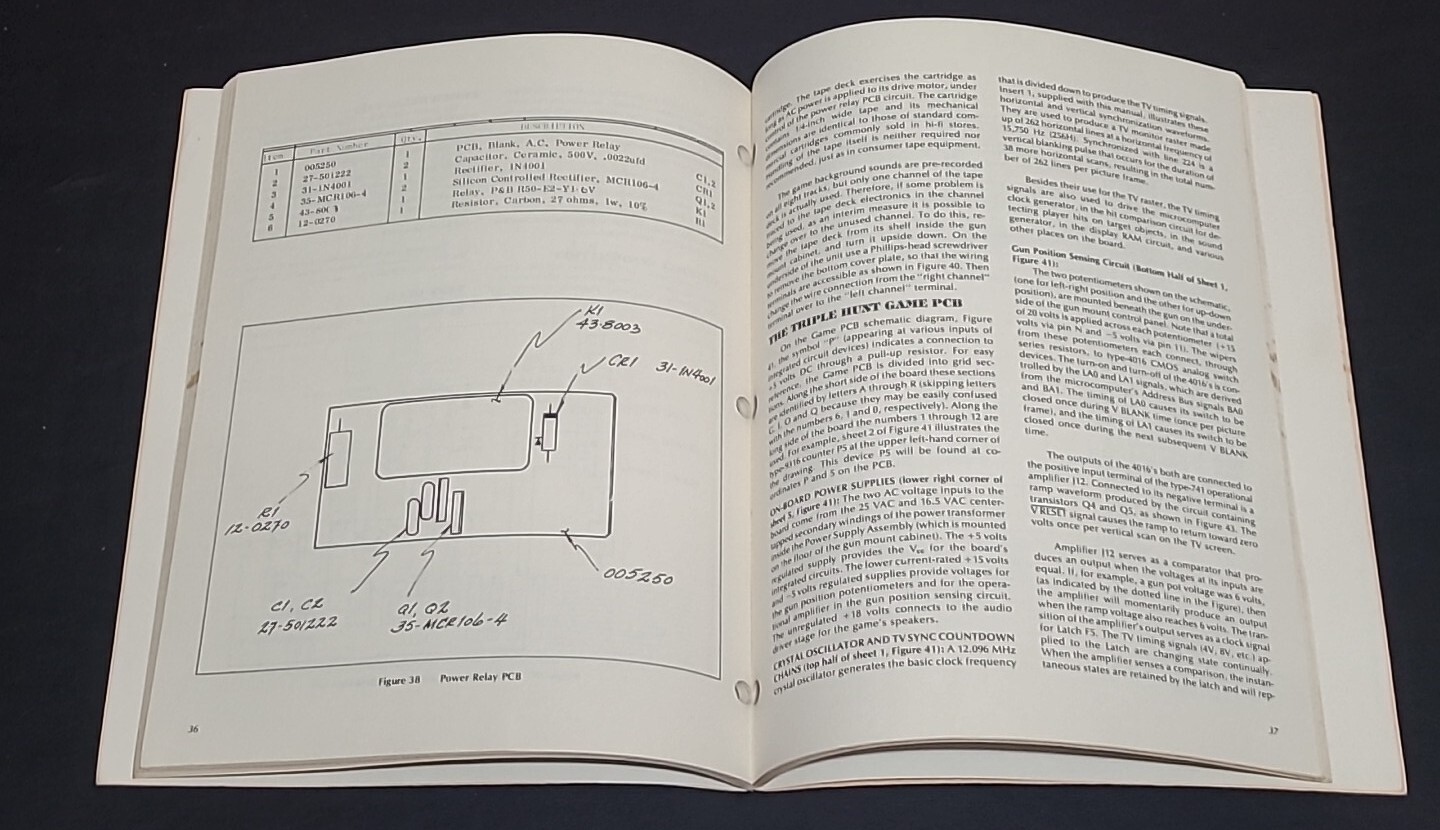 Item Part Number Qty. DESCRIPTION
1 005250 1 PCB, Blank, A.C. Power Relay
2 27-501222 2 Capacitor, Ceramic, 500V, .0022ufd C1,2
3 31-1N4001 1 Rectifier, 1N4001 CR1
4 35-MCR106-4 2 Silicon Controlled Rectifier, MCR106-4 Q1,2
5 43-800 1 Relay, P&B R50-E2-Y1-6V K1
6 12-0270 1 Resistor, Carbon, 27 ohms, 1w, 10% R1
K1
43-8003
CR1 31-1N4001
R1
12-0270
005250
C1, C2
27-501222
Q1, Q2
35-MCR106-4
Figure 38 Power Relay PCB
36
The tape deck exercises the cartridge as
AC power is applied to its drive motor, under
control of the power relay PCB circuit. The cartridge
contains 1/4-inch wide tape and its mechanical
are identical to those of standard com-
cartridges commonly sold in hi-fi stores.
handling of the tape itself is neither required nor
recommended, just as in consumer tape equipment.
The game background sounds are pre-recorded
on all eight tracks, but only one channel of the tape
deck is actually used. Therefore, if some problem is
traced to the tape deck electronics in the channel
being used, as an interim measure it is possible to
change over to the unused channel. To do this, re-
move the tape deck from its shelf inside the gun
mount cabinet, and turn it upside down. On the
underside of the unit use a Phillips-head screwdriver
to remove the bottom cover plate, so that the wiring
terminals are accessible as shown in Figure 40. Then
change the wire connection from the "right channel"
terminal over to the "left channel" terminal.
THE TRIPLE HUNT GAME PCB
On the Game PCB schematic diagram, Figure
41, the symbol "P" (appearing at various inputs of
integrated circuit devices) indicates a connection to
+5 volts DC through a pull-up resistor. For easy
reference, the Game PCB is divided into grid sec-
tions. Along the short side of the board these sections
are identified by letters A through R (skipping letters
G, I, O and Q because they may be easily confused
with the numbers 6, 1 and 0, respectively). Along the
long side of the board the numbers 1 through 12 are
used. For example, sheet 2 of Figure 41 illustrates the
type-9316 counter P5 at the upper left-hand corner of
the drawing. This device P5 will be found at co-
ordinates P and 5 on the PCB.
ON-BOARD POWER SUPPLIES (lower right corner of
sheet 5, Figure 41): The two AC voltage inputs to the
board come from the 25 VAC and 16.5 VAC center-
tapped secondary windings of the power transformer
inside the Power Supply Assembly (which is mounted
on the floor of the gun mount cabinet). The +5 volts
regulated supply provides the Vcc for the board's
integrated circuits. The lower current-rated +15 volts
and -5 volts regulated supplies provide voltages for
the gun position potentiometers and for the opera-
tional amplifier in the gun position sensing circuit.
The unregulated +18 volts connects to the audio
driver stage for the game's speakers.
CRYSTAL OSCILLATOR AND TV SYNC COUNTDOWN
CHAINS (top half of sheet 1, Figure 41): A 12.096 MHz
crystal oscillator generates the basic clock frequency
that is divided down to produce the TV timing signals.
Insert 1, supplied with this manual, illustrates these
horizontal and vertical synchronization waveforms.
They are used to produce a TV monitor raster made
up of 262 horizontal lines at a horizontal frequency of
15,750 Hz (256H). Synchronized with line 224 is a
vertical blanking pulse that occurs for the duration of
38 more horizontal scans, resulting in the total num-
ber of 262 lines per picture frame.
Besides their use for the TV raster, the TV timing
signals are also used to drive the microcomputer
clock generator, in the hit comparison circuit for de-
tecting player hits on target objects, in the sound
generator, in the display RAM circuit, and various
other places on the board.
Gun Position Sensing Circuit (Bottom Half of Sheet 1,
Figure 41):
The two potentiometers shown on the schematic,
(one for left-right position and the other for up-down
position), are mounted beneath the gun on the under-
side of the gun mount control panel. Note that a total
of 20 volts is applied across each potentiometer (+15
volts via pin N and -5 volts via pin 11). The wipers
from these potentiometers each connect, through
series resistors, to type-4016 CMOS analog switch
devices. The turn-on and turn-off of the 4016's is con-
trolled by the LA0 and LA1 signals, which are derived
from the microcomputer's Address Bus signals BA0
and BA1. The timing of LA0 causes its switch to be
closed once during V BLANK time (once per picture
frame), and the timing of LA1 causes its switch to be
closed once during the next subsequent V BLANK
time.
The outputs of the 4016's both are connected to
the positive input terminal of the type-741 operational
amplifier J12. Connected to its negative terminal is a
ramp waveform produced by the circuit containing
transistors Q4 and Q5, as shown in Figure 43. The
VRESET signal causes the ramp to return toward zero
volts once per vertical scan on the TV screen.
Amplifier J12 serves as a comparator that pro-
duces an output when the voltages at its inputs are
equal. If, for example, a gun pot voltage was 6 volts,
(as indicated by the dotted line in the Figure), then
the amplifier will momentarily produce an output
when the ramp voltage also reaches 6 volts. The tran-
sition of the amplifier's output serves as a clock signal
for Latch F5. The TV timing signals (4V, 8V, etc.) ap-
plied to the Latch are changing state continually.
When the amplifier senses a comparison, the instan-
taneous states are retained by the latch and will rep-
37